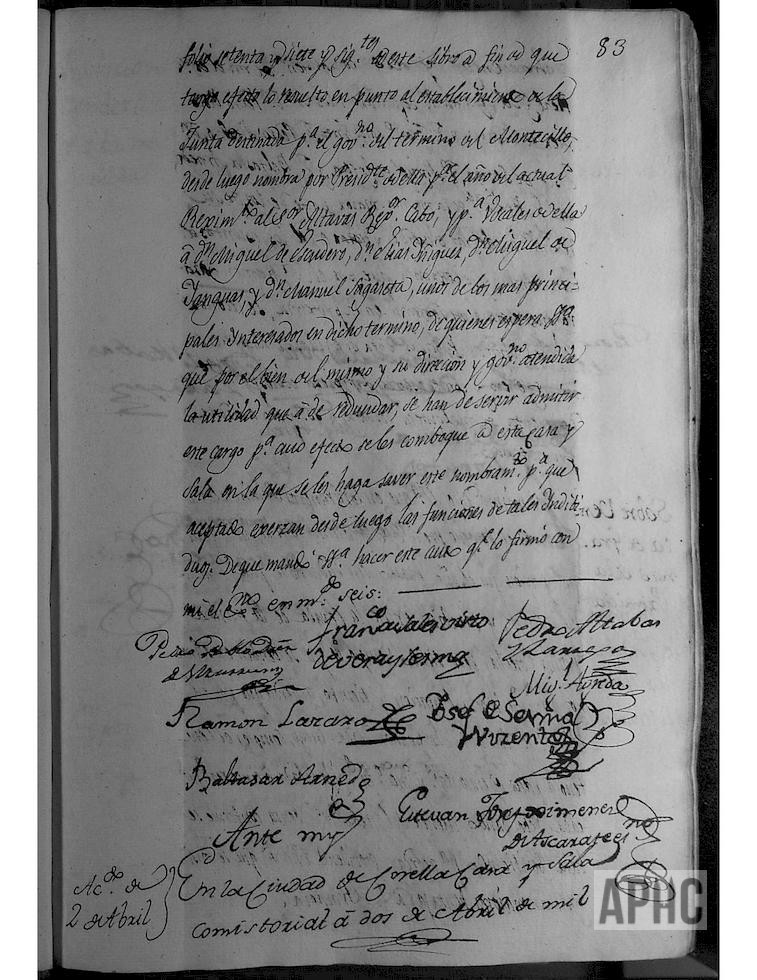 83
folio setenta y siete y sig.tes de este libro a fin de que
tenga efecto lo resuelto en punto al establecimiento de la
Junta destinada p.a el gov.no del termino del Montecillo,
desde luego nombra por Presid.te de ella p.a el año del actual
Reximto al S.or Altavas Rex.or Cabo, y p.a Vocales de ella
á D.n Miguel de Escudero, D.n Elias Yñiguez, D.n Miguel de
Yanguas, y D.n Manuel Sagaseta, unos de los mas princi-
pales Ynteresados en dicho termino, de quienes espera
que por el bien del mismo y su direcion y gov.no atendida
la utilidad que á de redundar, se han de servir admitir
este cargo p.a cuio efecto se les comboque á esta Casa y
Sala en la que se les haga saver este nombram.to p.a que
aceptado exerzan desde luego las funciones de tales Yndivi-
duos. De que mandó hacer este auto q.e lo firmó con
mi el Es.no en m.do seis:
Fran.co
de vera y lerma
Pedro Altabas
Mig.l Aguda
Ramon Lazaro
Josef
Baltasar Arnedo
Ante my
Estevan Ximenez
de Ascarate es.no
Ac.do de
2 de Abril
En la Ciudad de Corella Casa y Sala
Comistorial á dos de Abril de mil
APHC